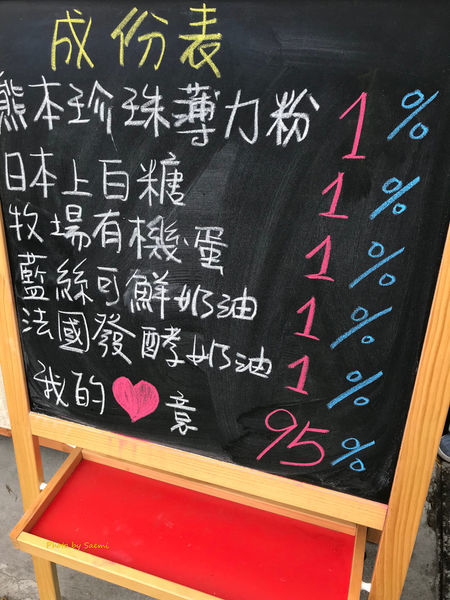 成份表
熊本珍珠薄力粉 1%
日本上白糖 1%
牧場有機蛋 1%
藍絲可鮮奶油 1%
法國發酵奶油 1%
我的♥意 95%
Photo by Saemi